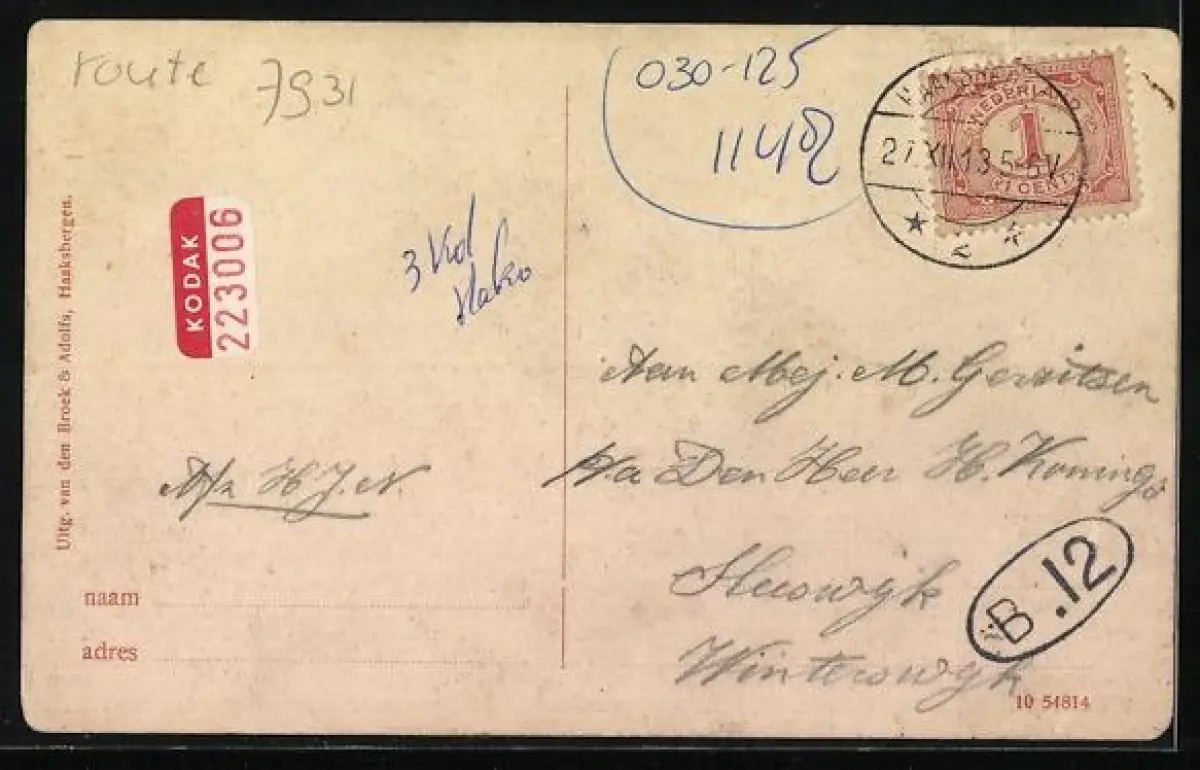 route 7931
030-125
1148
27.XII.13.5-6V
2
NEDERLAND
1
CENT
KODAK
223006
Uitg. van den Broek & Adolfs, Haaksbergen.
3 Kd
Aan Mej. M. Gerritsen
p/a Den Heer H. Konings
Winterswyk
Afz H.J.N.
B.12
naam
adres
10 54814